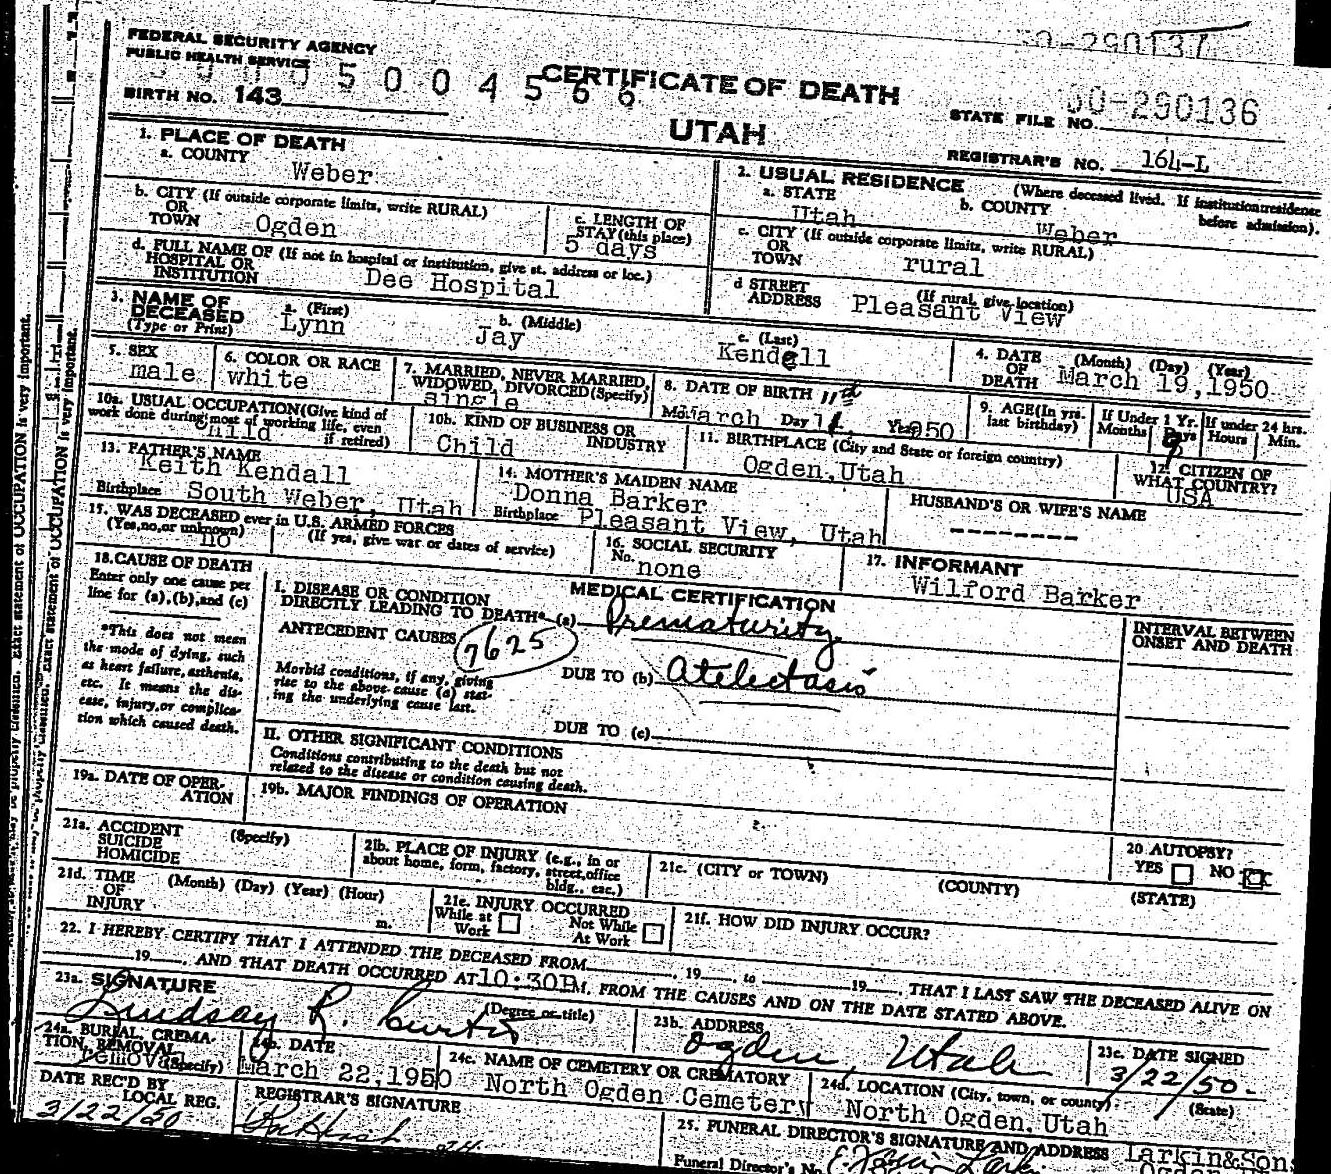 50-290137
FEDERAL SECURITY AGENCY
PUBLIC HEALTH SERVICE
5 0 0 4 5 6 6
CERTIFICATE OF DEATH
50-290136
BIRTH NO. 143
STATE FILE NO.
UTAH
REGISTRAR'S NO. 164-L
1. PLACE OF DEATH
a. COUNTY
Weber
2. USUAL RESIDENCE (Where deceased lived. If institution: residence before admission).
a. STATE
Utah
b. COUNTY
Weber
b. CITY (If outside corporate limits, write RURAL)
OR
TOWN
Ogden
c. LENGTH OF
STAY (this place)
5 days
c. CITY (If outside corporate limits, write RURAL)
OR
TOWN
rural
d. FULL NAME OF (If not in hospital or institution, give st. address or loc.)
HOSPITAL OR
INSTITUTION
Dee Hospital
d STREET (If rural, give location)
ADDRESS
Pleasant View
3. NAME OF
DECEASED
(Type or Print)
a. (First)
Lynn
b. (Middle)
Jay
c. (Last)
Kendell
4. DATE (Month) (Day) (Year)
OF
DEATH
March 19,1950
5. SEX
male
6. COLOR OR RACE
white
7. MARRIED, NEVER MARRIED,
WIDOWED, DIVORCED (Specify)
single
8. DATE OF BIRTH
March Day 950
9. AGE (In yrs.
last birthday)
If Under 1 Yr.
Months Days
If under 24 hrs.
Hours Min.
10a. USUAL OCCUPATION (Give kind of
work done during most of working life, even
if retired)
Child
10b. KIND OF BUSINESS OR
INDUSTRY
Child
11. BIRTHPLACE (City and State or foreign country)
Ogden, Utah
12. CITIZEN OF
WHAT COUNTRY?
USA
13. FATHER'S NAME
Keith Kendall
Birthplace South Weber, Utah
14. MOTHER'S MAIDEN NAME
Donna Barker
Birthplace Pleasant View, Utah
HUSBAND'S OR WIFE'S NAME
--------
15. WAS DECEASED ever in U.S. ARMED FORCES
(Yes, no, or unknown) (If yes, give war or dates of service)
no
16. SOCIAL SECURITY
No.
none
17. INFORMANT
Wilford Barker
18. CAUSE OF DEATH
Enter only one cause per
line for (a), (b), and (c)
*This does not mean
the mode of dying, such
as heart failure, asthenia,
etc. It means the dis-
ease, injury, or complica-
tion which caused death.
MEDICAL CERTIFICATION
I. DISEASE OR CONDITION
DIRECTLY LEADING TO DEATH* (a) Prematurity
ANTECEDENT CAUSES
7625
Morbid conditions, if any, giving
rise to the above cause (a) stat-
ing the underlying cause last.
DUE TO (b) Atelectasis
DUE TO (c)
INTERVAL BETWEEN
ONSET AND DEATH
II. OTHER SIGNIFICANT CONDITIONS
Conditions contributing to the death but not
related to the disease or condition causing death.
19a. DATE OF OPER-
ATION
19b. MAJOR FINDINGS OF OPERATION
20 AUTOPSY?
YES NO
21a. ACCIDENT (Specify)
SUICIDE
HOMICIDE
21b. PLACE OF INJURY (e.g., in or
about home, form, factory, street, office
bldg., esc.)
21c. (CITY or TOWN) (COUNTY) (STATE)
21d. TIME (Month) (Day) (Year) (Hour)
OF
INJURY m.
21e. INJURY OCCURRED
While at
Work
Not While
At Work
21f. HOW DID INJURY OCCUR?
22. I HEREBY CERTIFY THAT I ATTENDED THE DECEASED FROM , 19 , to 19 , THAT I LAST SAW THE DECEASED ALIVE ON
19 , AND THAT DEATH OCCURRED AT 10:30P M. FROM THE CAUSES AND ON THE DATE STATED ABOVE.
23a. SIGNATURE
Lindsay R. Curtis (Degree or title)
23b. ADDRESS
Ogden, Utah
23c. DATE SIGNED
3/22/50
24a. BURIAL, CREMA-
TION, REMOVAL
(Specify)
removal
24b. DATE
March 22,1950
24c. NAME OF CEMETERY OR CREMATORY
North Ogden Cemetery
24d. LOCATION (City, town, or county) (State)
North Ogden, Utah
DATE REC'D BY
LOCAL REG.
3/22/50
REGISTRAR'S SIGNATURE
25. FUNERAL DIRECTOR'S SIGNATURE AND ADDRESS
Larkin&Son
Funeral Director's No.